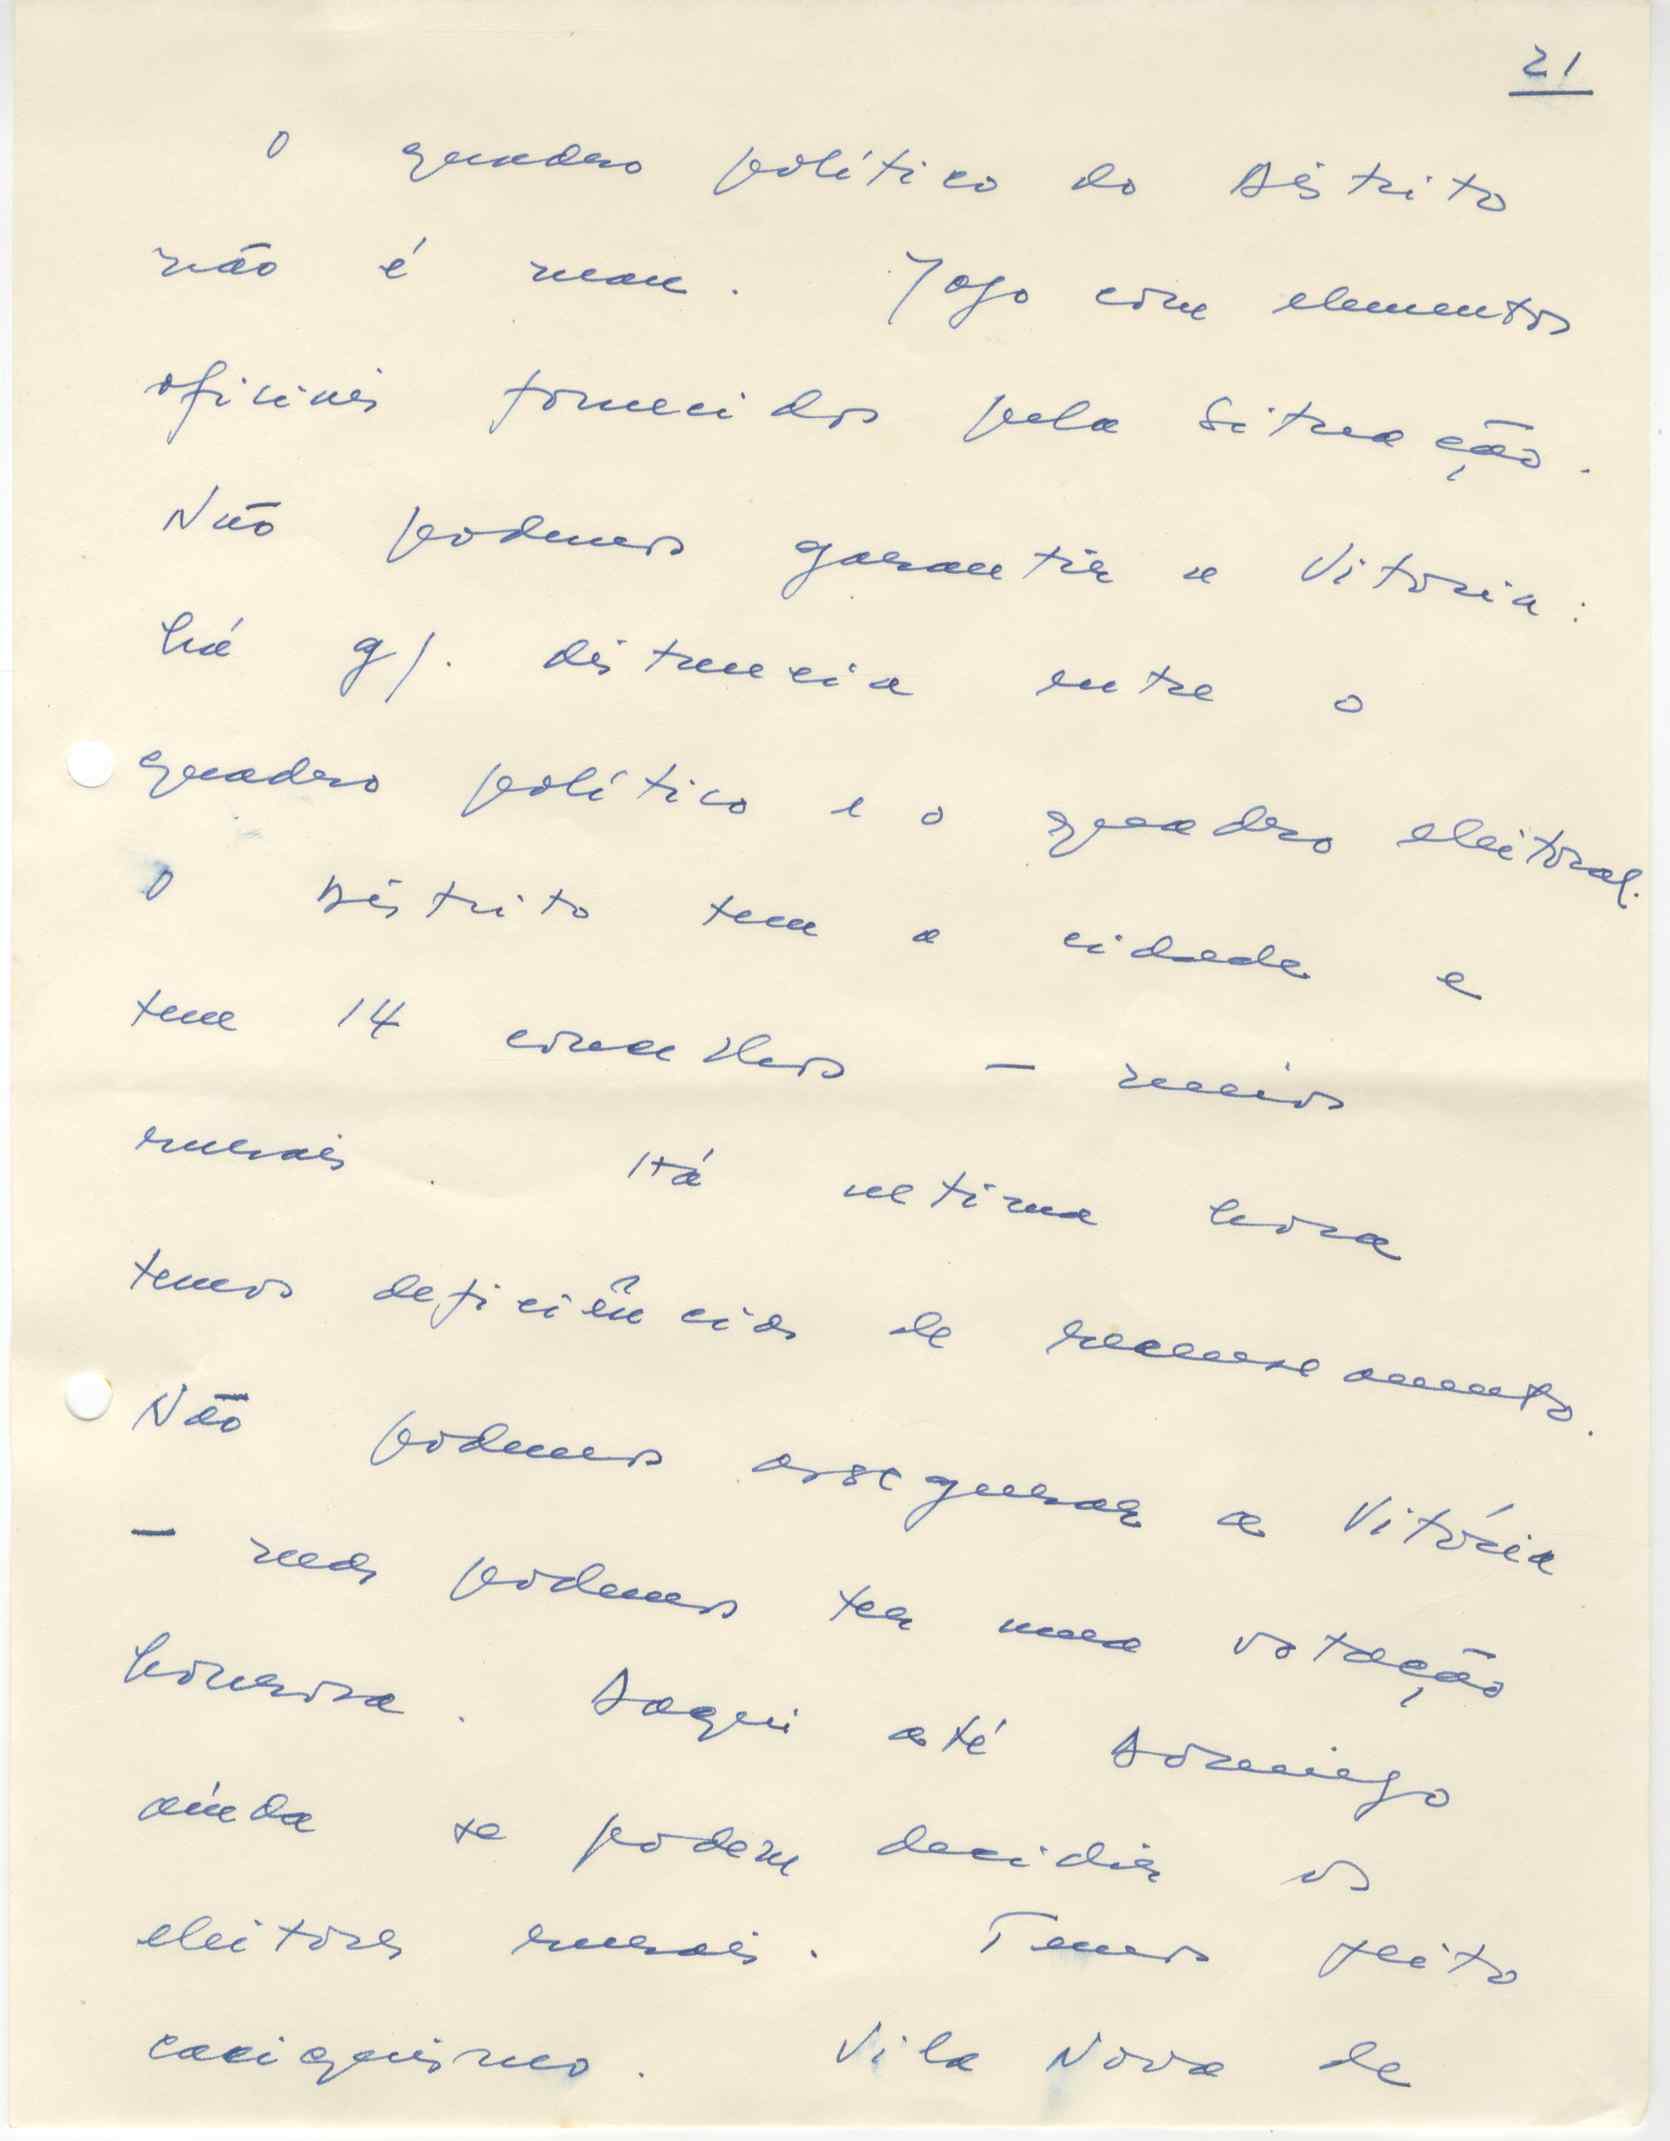 21
O quadro político do Distrito
não é mau. Jogo com elementos
oficiais fornecidos pela Situação.
Não podemos garantir a Vitoria:
há g/. distancia entre o
quadro político e o quadro eleitoral.
O Distrito tem a cidade e
tem 14 concelhos – meios
rurais. Há ultima hora
temos deficiências de recenseamento.
Não podemos assegurar a Vitória
– mas podemos ter uma votação
honrosa. Daqui até Domingo
ainda se podem decidir os
eleitores rurais. Temos feito
caciquismo. Vila Nova de